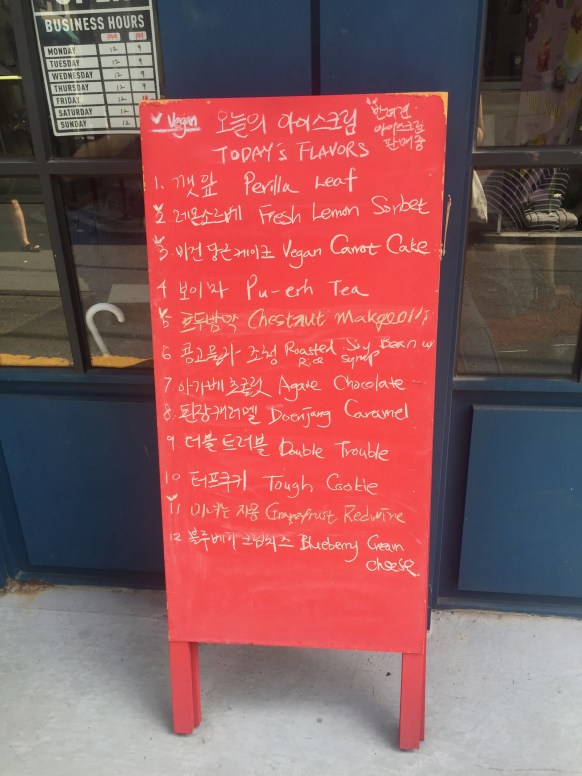 BUSINESS HOURS
OPEN CLOSE
MONDAY 12 9
TUESDAY 12 9
WEDNESDAY 12 9
THURSDAY 12 9
FRIDAY 12 9
SATURDAY 12 9
SUNDAY 12 9
✓ Vegan 오늘의 아이스크림
TODAY'S FLAVORS
아이스크림
판매중
1. 깻잎 Perilla Leaf
2. 레몬소르베 Fresh Lemon Sorbet
3. 비건 당근케이크 Vegan Carrot Cake
4 보이차 Pu-erh Tea
5 Chestnut Makgeolli
6 콩고물과 조청 Roasted Soy Bean w/
Rice Syrup
7 아가베 초콜릿 Agave Chocolate
8 된장캐러멜 Doenjang Caramel
9 더블 트러블 Double Trouble
10 터프쿠키 Tough Cookie
11 자몽 Grapefruit Redwine
12 블루베리 크림치즈 Blueberry Cream
cheese